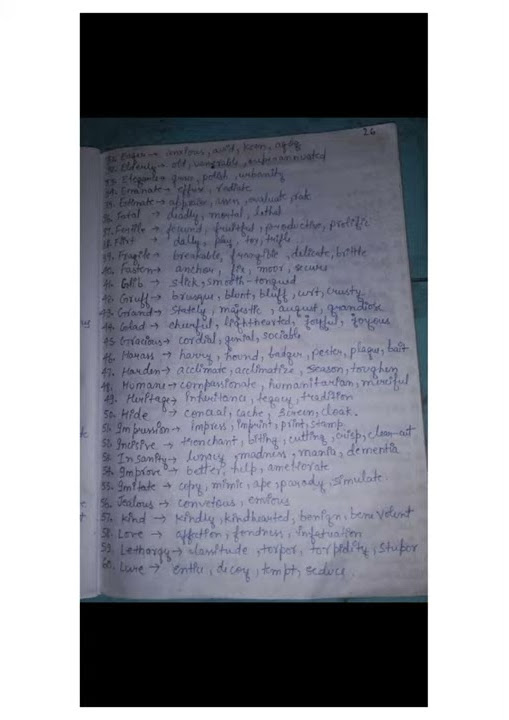 26
Eager → zealous, avid, keen,
Elderly → old, venerable,
Elegance → grace, polish, urbanity
34. Emanate → effuse, radiate
35. Estimate → appraise, evaluate, rate
36. Fatal → deadly, mortal, lethal
37. Fertile → fecund, fruitful, productive, prolific
Flirt → dally, play, toy, trifle
39. Fragile → breakable, frangible, delicate, brittle
40. Fasten → anchor, fix, moor, secure
41. Glib → slick, smooth-tongued
42. Gruff → brusque, blunt, bluff, curt, crusty
43. Grand → stately, majestic, august, grandiose
44. Glad → cheerful, lighthearted, joyful, joyous
45. Gracious → cordial, genial, sociable
46. Harass → harry, hound, badger, pester, plague, bait
47. Harden → acclimate, acclimatize, season, toughen
48. Humane → compassionate, humanitarian, merciful
49. Heritage → inheritance, legacy, tradition
50. Hide → conceal, cache, screen, cloak.
51. Impression → impress, imprint, print, stamp
52. Incisive → trenchant, biting, cutting, crisp, clean-cut
53. Insanity → lunacy, madness, mania, dementia
54. Improve → better, help, ameliorate
55. Imitate → copy, mimic, ape, parody, simulate.
56. Jealous → covetous, envious
57. Kind → kindly, kindhearted, benign, benevolent
58. Love → affection, fondness, infatuation
59. Lethargy → lassitude, torpor, torpidity, stupor
60. Lure → entice, decoy, tempt, seduce.